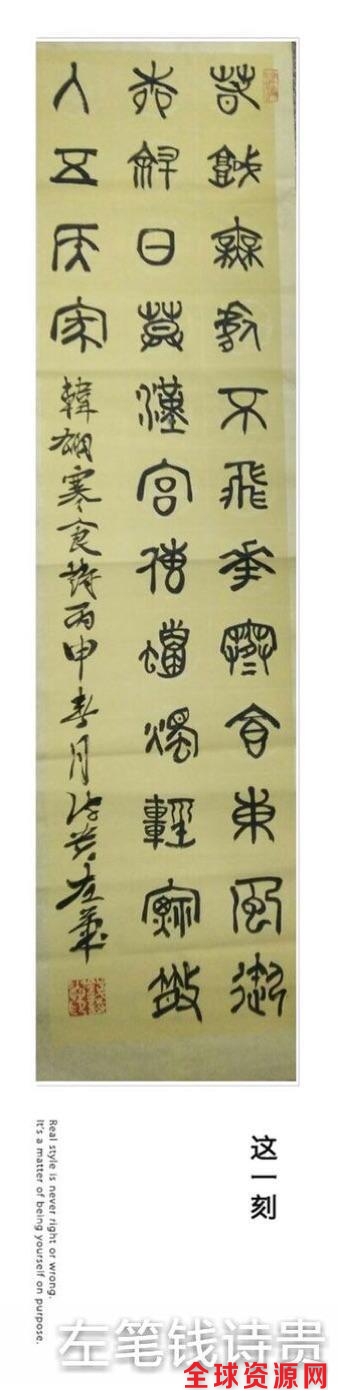 春城無處不飛花寒食東風御
柳斜日暮漢宮傳蠟燭輕煙散
入五侯家 韓翃寒食詩丙申春月诗贵左筆
这一刻
Real style is never right or wrong.
It's a matter of being yourself on purpose.
左笔钱诗贵
全球资源网